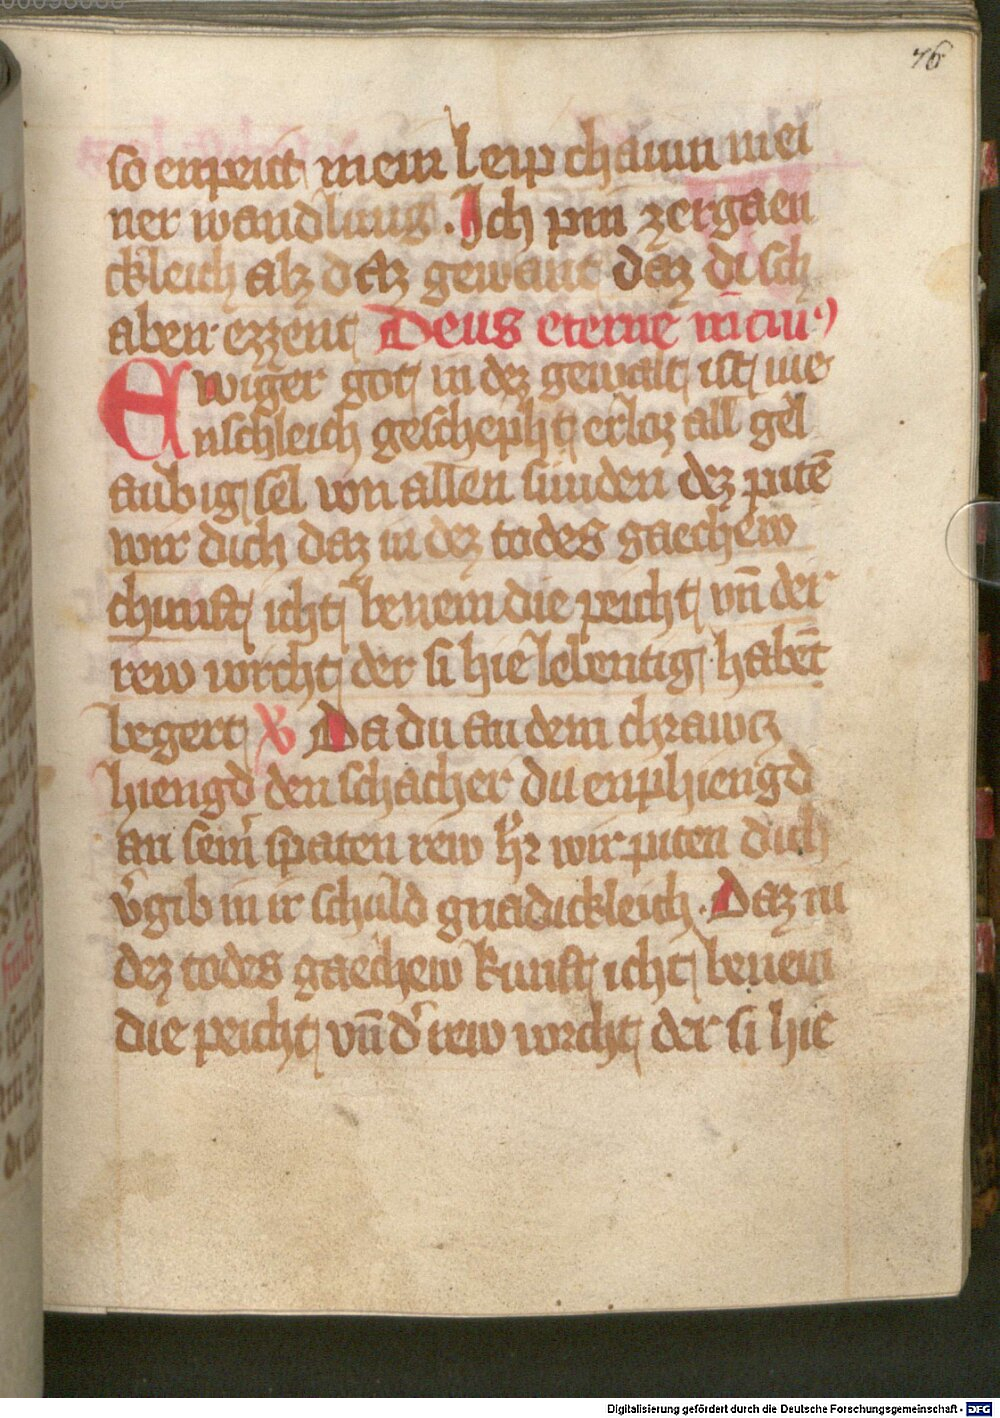 76
so enpeitt mein leip chaum mei
ner wandlung. Ich pin zergaen
ckleich alz daz gewant daz di sch
aben ezzent Deus eterne in cuiꝰ
Ewiger got in dez gewalt ist me
nschleich geschepht erloz all gel
aubig sel von allen sunden dez pitē
wir dich daz in dez todes gaechew
chunft icht benem die peicht vn̄ der
rew vrcht der si hie lebentig habēt
begert ℣ Da du an dem chrawcz
hiengd den schacher du enphiengd
an seim spaten rew hr wir piten dich
vgib in ir schuld gnadickleich. Daz in
dez todes gaechew kunft icht benem
die peicht vn̄ d rew vrcht der si hie
Digitalisierung gefördert durch die Deutsche Forschungsgemeinschaft - DFG